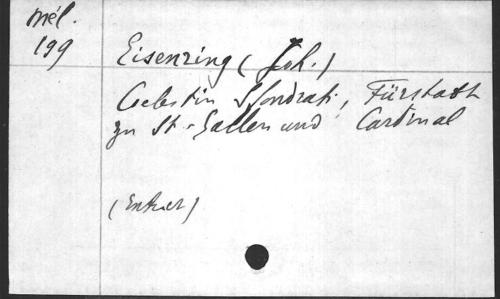 Mél.
199
Eisenring (Joh.)
Coelestin Sfondrati, Fürstabt
zu St. Gallen und Cardinal